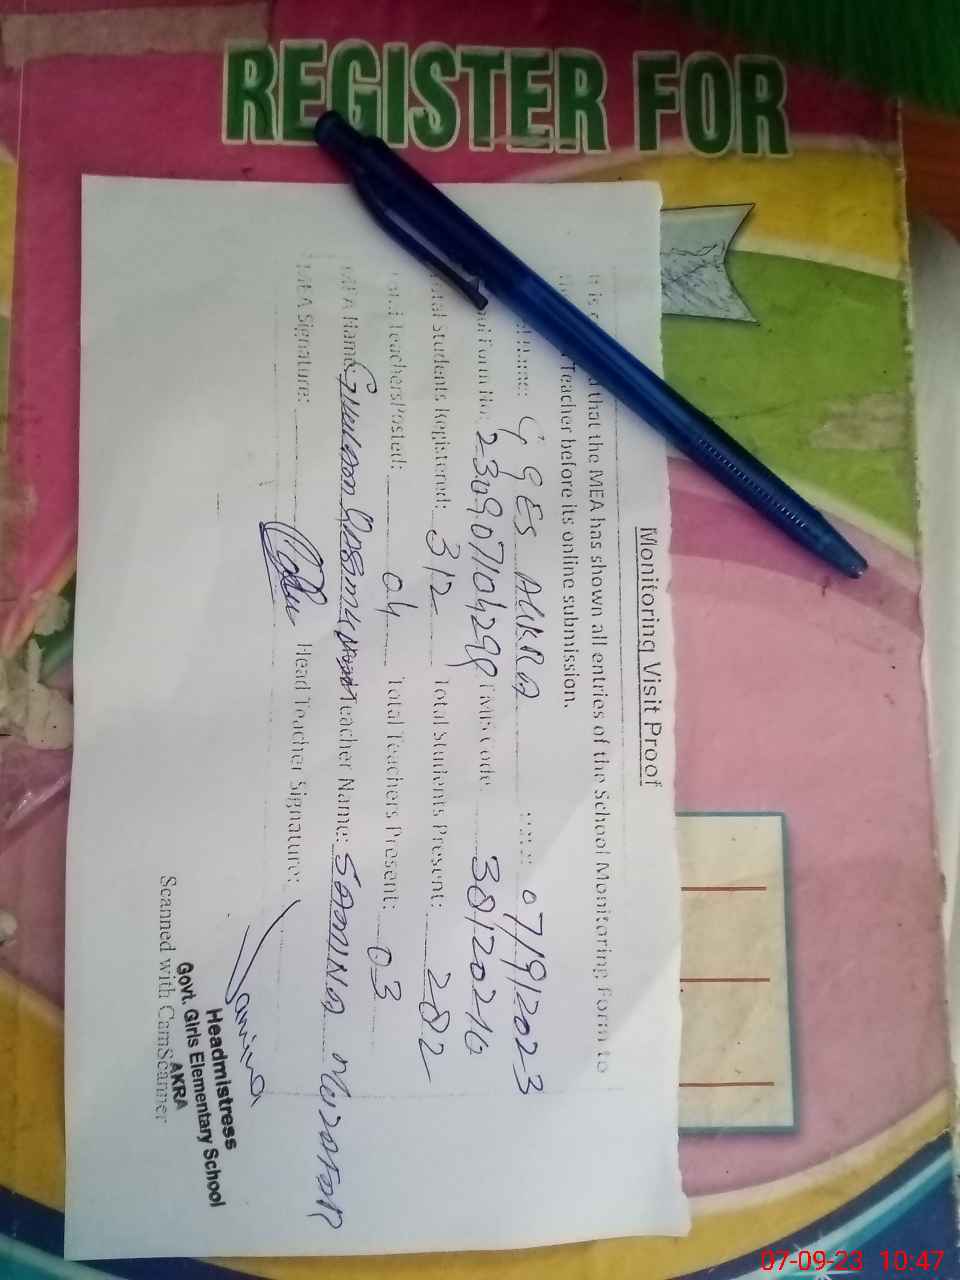 REGISTER FOR
Monitoring Visit Proof
It is that the MEA has shown all entries of the School Monitoring Form to
Teacher before its online submission.
Name: GGES AKKRA Date: 07/9/2023
Form No: 23090710429 Code 38120210
Total Students Registered: 312 Total Students Present: 282
Total Teachers Posted: 04 Total Teachers Present: 03
MEA Name: Teacher Name: SAMINA
MEA Signature: Head Teacher Signature: Samina
Headmistress
Govt. Girls Elementary School
AKRA
Scanned with CamScanner
07-09-23 10:47